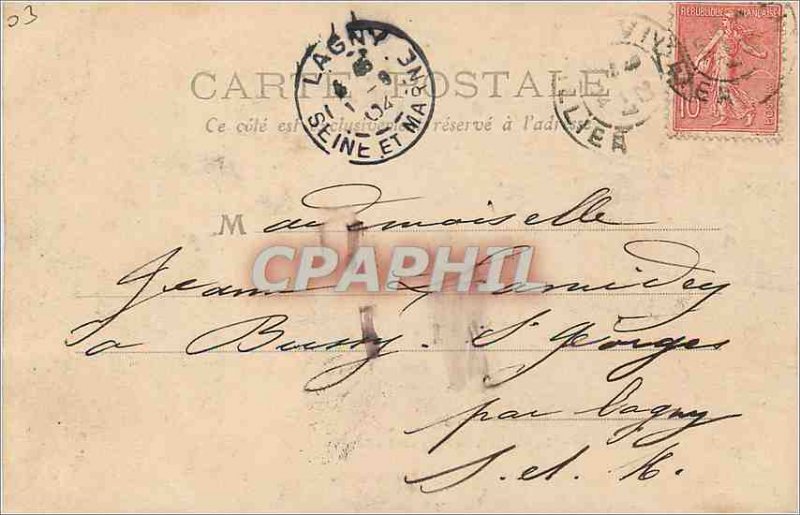 03
RÉPUBLIQUE FRANÇAISE
10
POSTES
LAGNY
04
SEINE ET MARNE
CARTE POSTALE
Ce côté est exclusivement réservé à l'adresse
Mademoiselle
CPAPHIL
Jeanne
à Bussy. St Georges
par Lagny
S. et M.